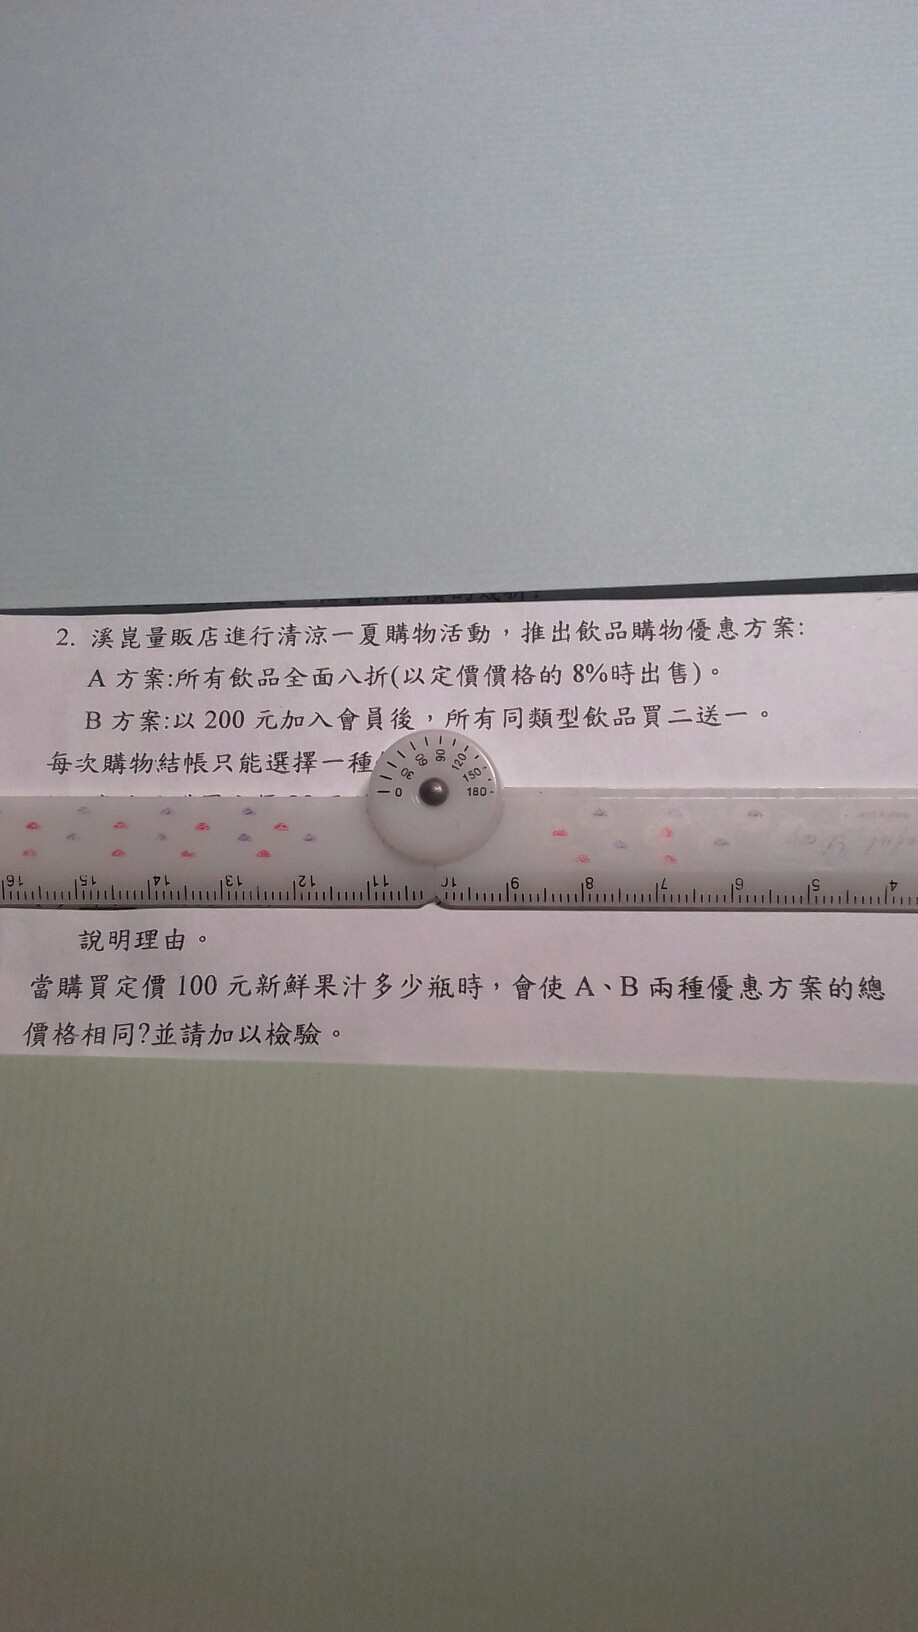 2. 溪崑量販店進行清涼一夏購物活動，推出飲品購物優惠方案:
A 方案:所有飲品全面八折(以定價價格的 8%時出售)。
B 方案:以 200 元加入會員後，所有同類型飲品買二送一。
每次購物結帳只能選擇一種
0 30 60 90 120 150 180
16 15 14 13 12 11 10 9 8 7 6 5 4
說明理由。
當購買定價 100 元新鮮果汁多少瓶時，會使 A、B 兩種優惠方案的總
價格相同?並請加以檢驗。